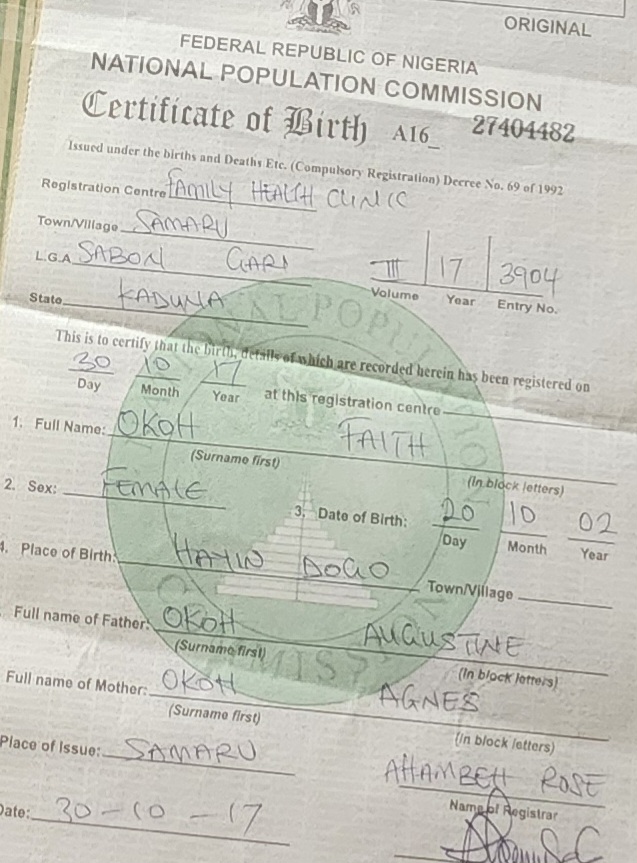 ORIGINAL
FEDERAL REPUBLIC OF NIGERIA
NATIONAL POPULATION COMMISSION
Certificate of Birth A16_ 27404482
Issued under the births and Deaths Etc. (Compulsory Registration) Decree No. 69 of 1992
Registration Centre FAMILY HEALTH CLINIC
Town/Village SAMARU
L.G.A SABON GARI
III 17 3904
Volume Year Entry No.
State KADUNA
This is to certify that the birth, details of which are recorded herein has been registered on
30 10 17 at this registration centre
Day Month Year
1. Full Name: OKOH FAITH
(Surname first) (In block letters)
2. Sex: FEMALE 3. Date of Birth: 20 10 02
Day Month Year
4. Place of Birth: HAYIN DOGO Town/Village
Full name of Father: OKOH AUGUSTINE
(Surname first) (In block letters)
Full name of Mother: OKOH AGNES
(Surname first) (In block letters)
Place of Issue: SAMARU ROSE
Name of Registrar
Date: 30-10-17